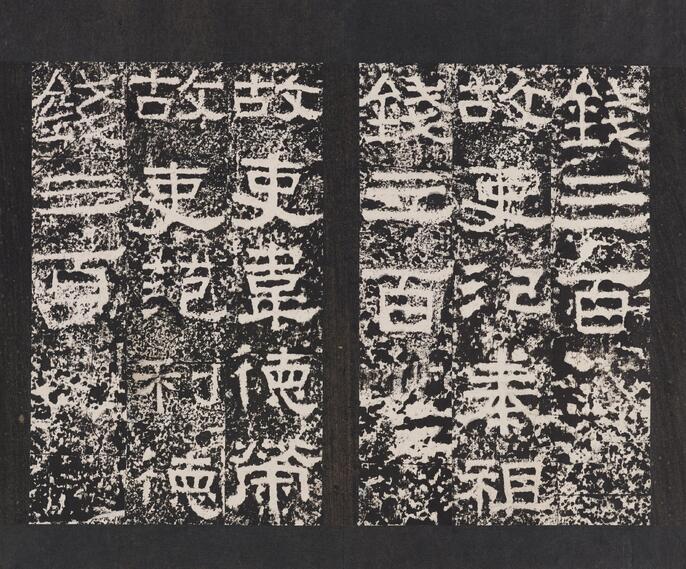 錢三百
故吏氾奉祖
錢三百
故吏韋德榮
故吏范利德
錢三百